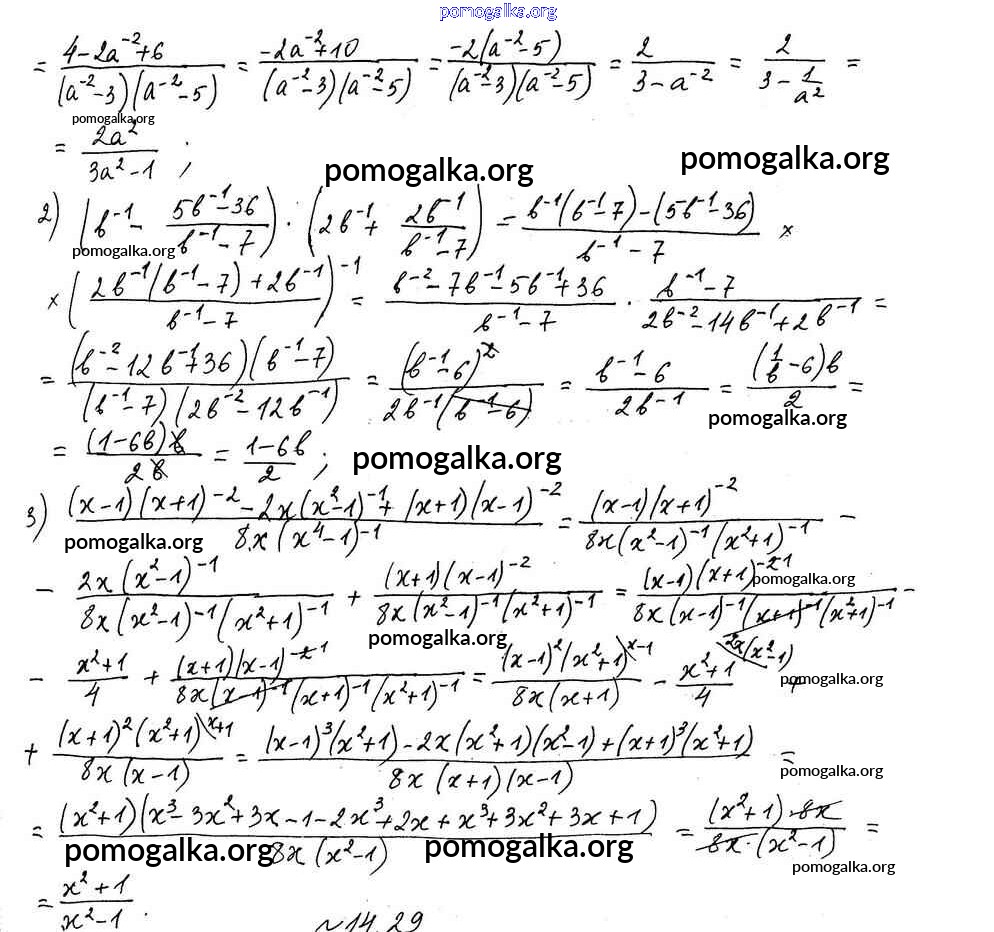 pomogalka.org
= (4-2a⁻²+6)/((a⁻²-3)(a⁻²-5)) = (-2a⁻²+10)/((a⁻²-3)(a⁻²-5)) = (-2(a⁻²-5))/((a⁻²-3)(a⁻²-5)) = 2/(3-a⁻²) = 2/(3-1/a²) =
pomogalka.org
= 2a²/(3a²-1) ;
pomogalka.org pomogalka.org
2) (b⁻¹ - (5b⁻¹-36)/(b⁻¹-7)) · (2b⁻¹ + 2b⁻¹/(b⁻¹-7)) = (b⁻¹(b⁻¹-7)-(5b⁻¹-36))/(b⁻¹-7) ×
pomogalka.org
× ((2b⁻¹(b⁻¹-7)+2b⁻¹)/(b⁻¹-7))⁻¹ = (b⁻²-7b⁻¹-5b⁻¹+36)/(b⁻¹-7) · (b⁻¹-7)/(2b⁻²-14b⁻¹+2b⁻¹) =
= ((b⁻²-12b⁻¹+36)(b⁻¹-7))/((b⁻¹-7)(2b⁻²-12b⁻¹)) = (b⁻¹-6)²/(2b⁻¹(b⁻¹-6)) = (b⁻¹-6)/(2b⁻¹) = ((1/b-6)b)/2 =
pomogalka.org
= ((1-6b)b)/(2b) = (1-6b)/2 ;
pomogalka.org
3) ((x-1)(x+1)⁻²-2x(x²-1)⁻¹+(x+1)(x-1)⁻²)/(8x(x⁴-1)⁻¹) = ((x-1)(x+1)⁻²)/(8x(x²-1)⁻¹(x²+1)⁻¹) -
pomogalka.org
- (2x(x²-1)⁻¹)/(8x(x²-1)⁻¹(x²+1)⁻¹) + ((x+1)(x-1)⁻²)/(8x(x²-1)⁻¹(x²+1)⁻¹) = ((x-1)(x+1)⁻²⁻¹)/(8x(x-1)⁻¹(x+1)⁻¹(x²+1)⁻¹) -
pomogalka.org
pomogalka.org
- (x²+1)/4 + ((x+1)(x-1)⁻²⁻¹)/(8x(x-1)⁻¹(x+1)⁻¹(x²+1)⁻¹) = ((x-1)²(x²+1)\x-1)/(8x(x+1)) - (x²+1)/4 \2x(x²-1) +
pomogalka.org
+ ((x+1)²(x²+1)\x+1)/(8x(x-1)) = ((x-1)³(x²+1)-2x(x²+1)(x²-1)+(x+1)³(x²+1))/(8x(x+1)(x-1)) =
pomogalka.org
= ((x²+1)(x³-3x²+3x-1-2x³+2x+x³+3x²+3x+1))/(8x(x²-1)) = ((x²+1)·8x)/(8x·(x²-1)) =
pomogalka.org pomogalka.org pomogalka.org
= (x²+1)/(x²-1) .
№14.29